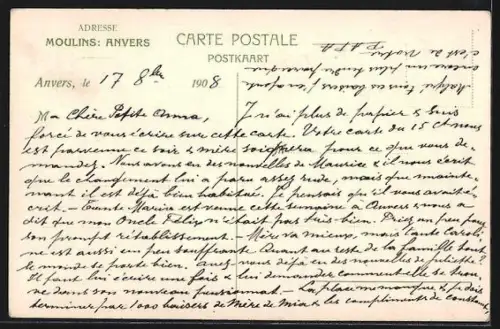 ADRESSE
MOULINS: ANVERS
CARTE POSTALE
POSTKAART
Anvers, le 17 8bre 1908
Ma Chère Petite Anna, Je n'ai plus de papier & suis
forcé de vous écrire sur cette carte. Votre carte du 15 ct nous
est parvenue ce soir & mère soignera pour ce que vous de-
mandez. Nous avons eu des nouvelles de Maurice & il nous écrit
que le changement lui a paru assez rude, mais que mainte-
nant il est déjà bien habitué. Je pensais qu'il vous avait é-
crit. - Tante Maria est venue cette semaine à Anvers & nous a
dit que mon Oncle Félix n'était pas très bien. Priez un peu pour
son prompt rétablissement. - Mère va mieux, mais Tante Caroli-
ne est aussi un peu souffrante. Quant au reste de la famille tout
le monde se porte bien. Avez-vous déjà eu des nouvelles de Juliette?
Il faut lui écrire une fois & lui demander comment elle se trou-
ve dans son nouveau pensionnat. - La place me manque & je dois
terminer par 1000 baisers de Mère de Mia & les compliments de
c'est de Votre
PAPA